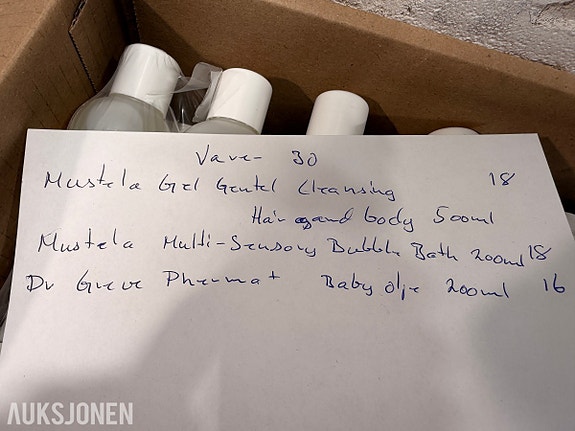 Vare- 30
Mustela Gel Gentel Cleansing 18
Hair and body 500ml
Mustela Multi-Sensory Bubble Bath 200ml 18
Dr Greve Pharmat Baby olje 200ml 16
AUKSJONEN